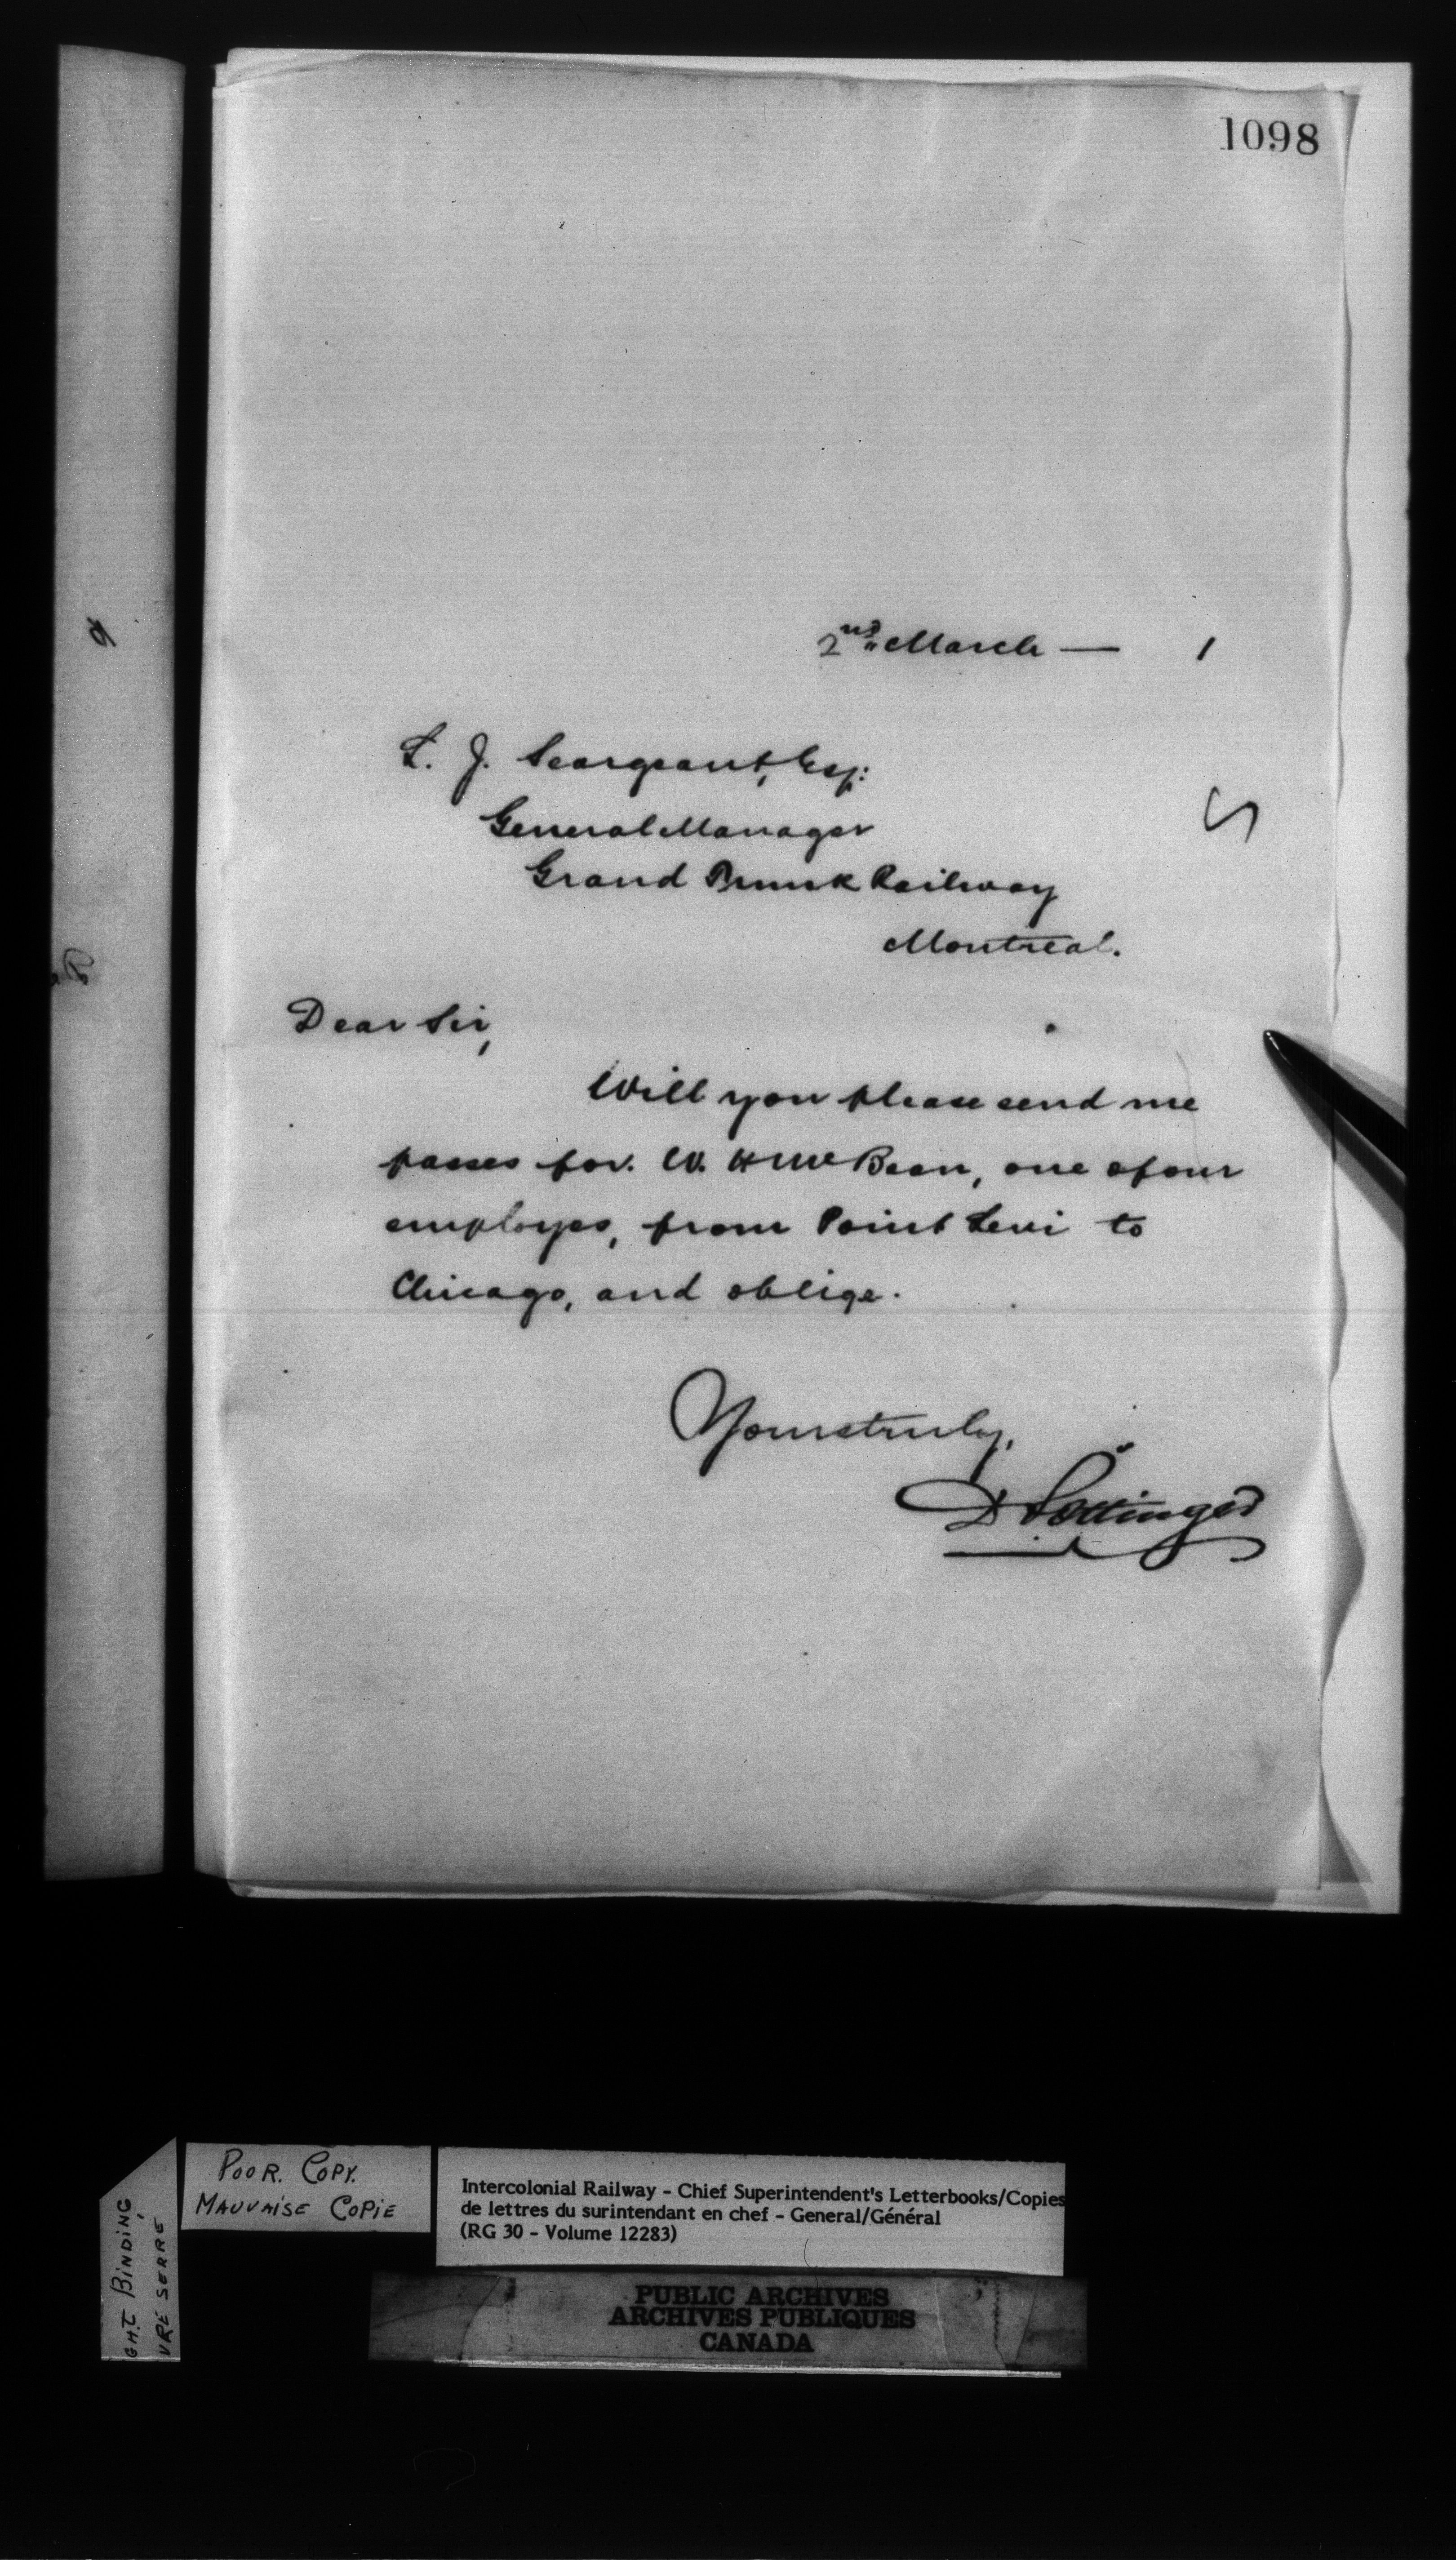 1098
2nd March — 1
L. J. Seargeant, Esq:
General Manager
Grand Trunk Railway
Montreal.
Dear Sir,
Will you please send me
passes for. W. H McBean, one of our
employes, from Point Levi to
Chicago, and oblige.
Yours truly,
D Pottinger
POOR. COPY.
MAUVAISE COPIE
GHT BINDING
VRE SERRE
Intercolonial Railway - Chief Superintendent's Letterbooks/Copies
de lettres du surintendant en chef - General/Général
(RG 30 - Volume 12283)
PUBLIC ARCHIVES
ARCHIVES PUBLIQUES
CANADA